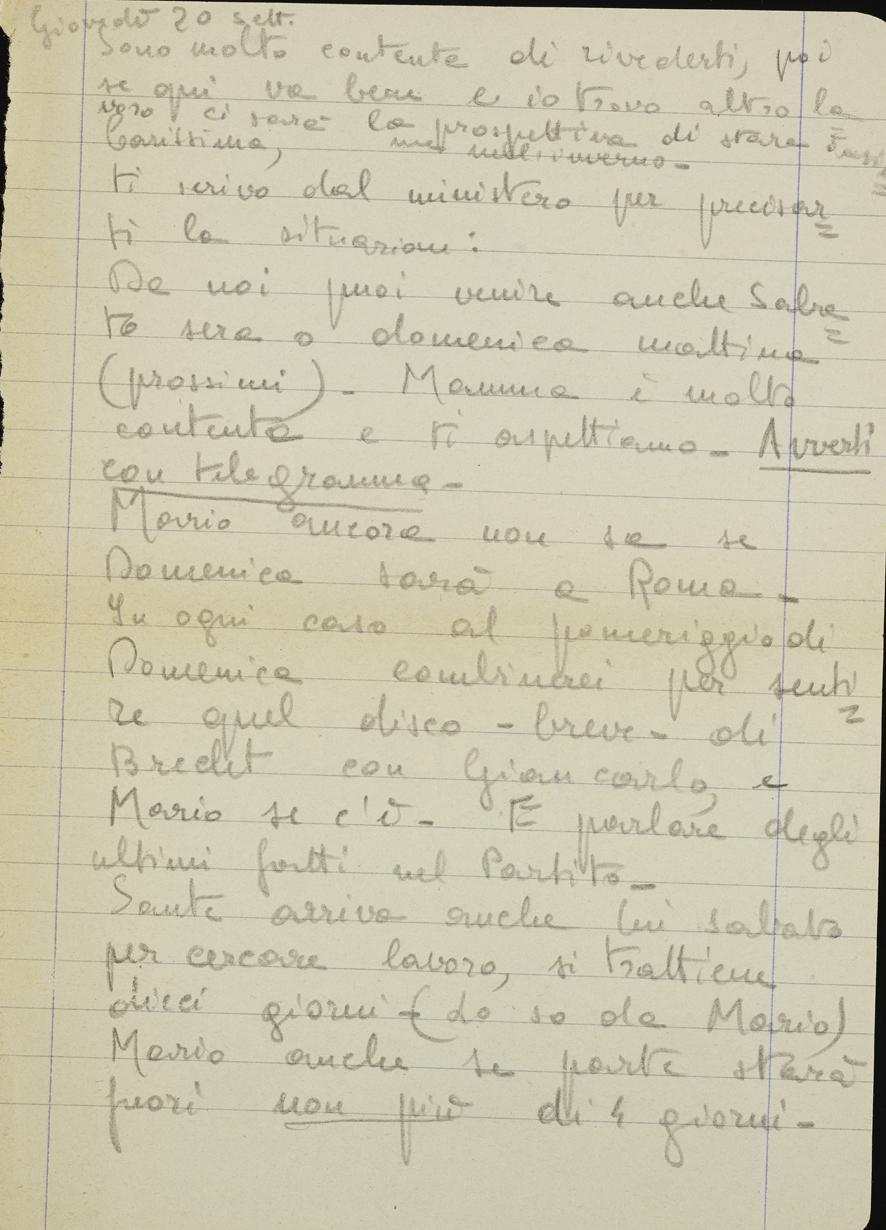 Giovedì 20 sett.
Sono molto contenta di rivederti, poi
se qui va bene e io trovo altro la
voro ci sarà la prospettiva di stare
Carissima, nell'inverno -
ti scrivo dal ministero per precisar=
ti la situazione:
Da noi puoi venire anche Saba=
to sera o domenica mattina
(prossimi) - Mamma è molto
contenta e ti aspettiamo - Avverti
con telegramma -
Mario ancora non sa se
Domenica sarà a Roma -
In ogni caso al pomeriggio di
Domenica combinerei per senti=
re quel disco - breve - di
Brecht con Giancarlo, e
Mario se c'è - E parlare degli
ultimi fatti nel Partito -
Sante arriva anche lui sabato
per cercare lavoro, si trattiene
dieci giorni - (lo so da Mario)
Mario anche se parte starà
fuori non più di 4 giorni -